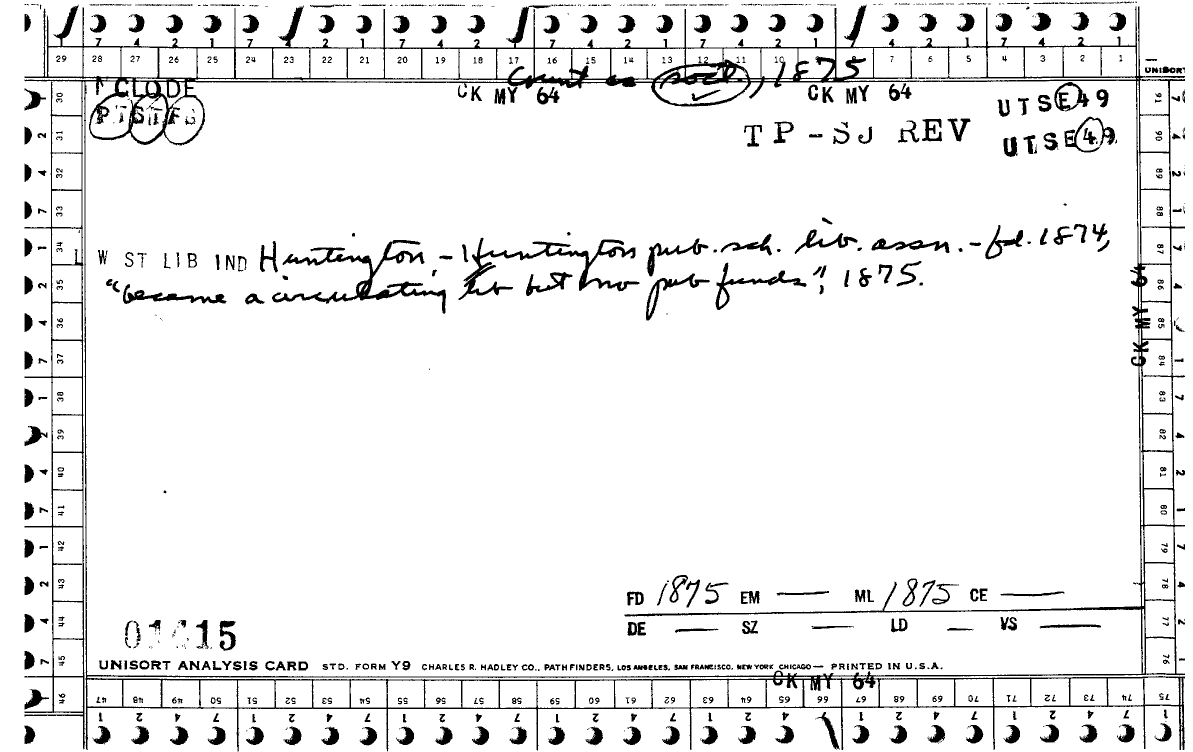 7 4 2 1 7 4 2 1 7 4 2 1 7 4 2 1 7 4 2 1 7 4 2 1 7 4 2 1
29 28 27 26 25 24 23 22 21 20 19 18 17 16 15 14 13 12 11 10 9 8 7 6 5 4 3 2 1
UNISORT
Count as soc'l., 1875
CLODE
CK MY 64 CK MY 64
UTSE49
TP-SJ REV
UTSE49
W ST LIB IND Huntington - Huntington pub. sch. lib. assn. - fd. 1874,
"became a circulating lib but no pub funds", 1875.
CK MY 64
FD 1875 EM — ML 1875 CE —
DE — SZ — LD — VS —
01415
UNISORT ANALYSIS CARD STD. FORM Y9 CHARLES R. HADLEY CO., PATHFINDERS, LOS ANGELES, SAN FRANCISCO, NEW YORK, CHICAGO — PRINTED IN U.S.A.
CK MY 64
30 31 32 33 34 35 36 37 38 39 40 41 42 43 44 45 46
47 48 49 50 51 52 53 54 55 56 57 58 59 60 61 62 63 64 65 66 67 68 69 70 71 72 73 74 75
91 90 89 88 87 86 85 84 83 82 81 80 79 78 77 76